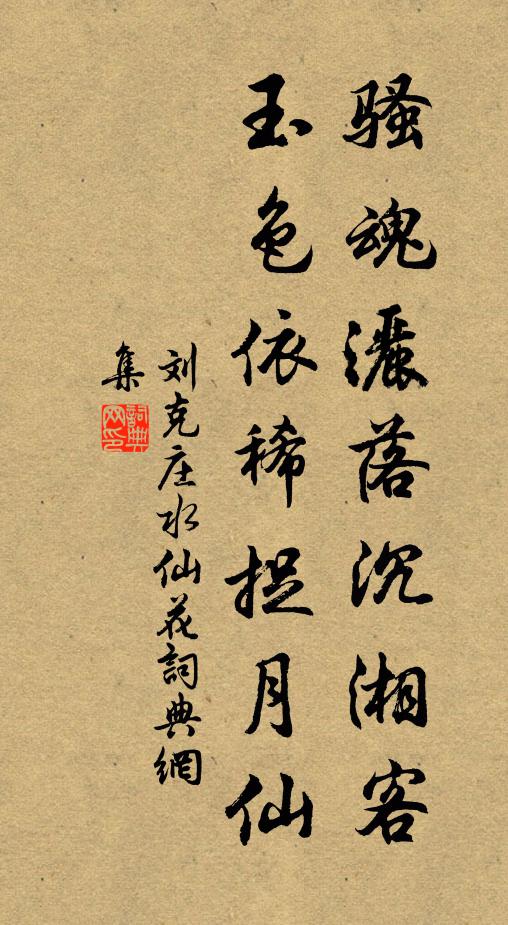 骚魂灑落沉湘客
玉色依稀捉月仙
刘克庄水仙花詞典網
集
詞典網印